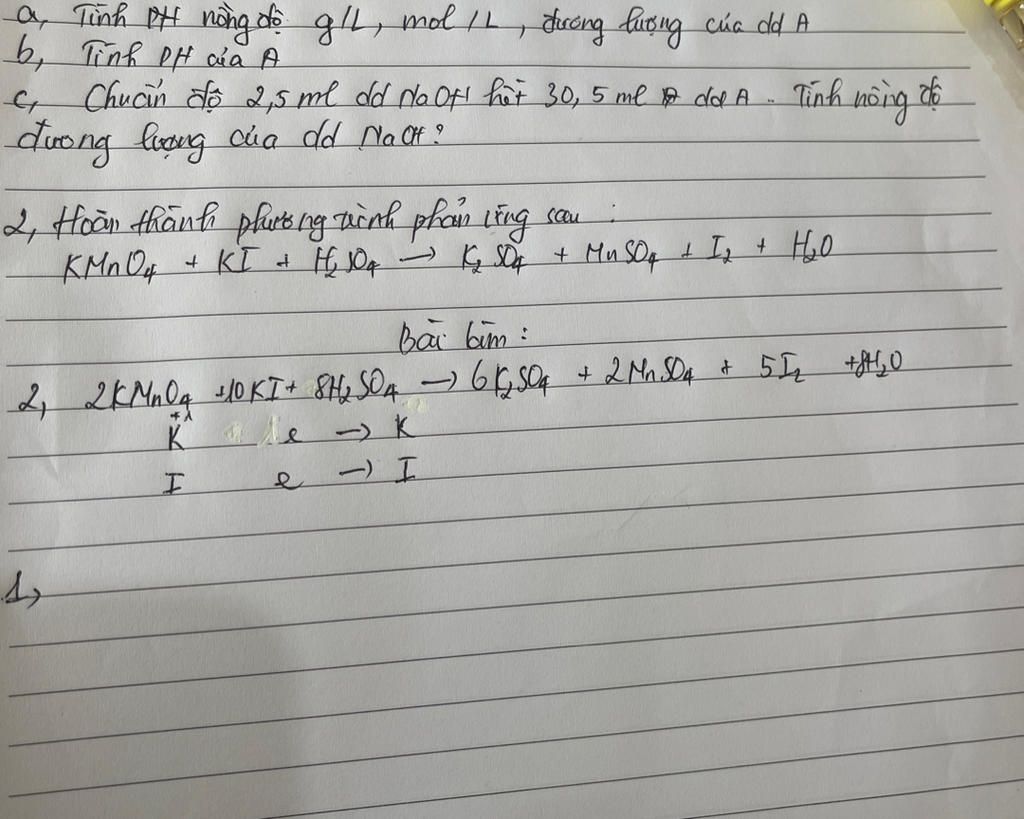 a, Tính PH nồng độ g/L, mol/L, đương lượng của dd A
b, Tính PH của A
c, Chuẩn độ 2,5 ml dd NaOH hết 30,5 ml dd A. Tính nồng độ
đương lượng của dd NaOH?
2, Hoàn thành phương trình phản ứng sau :
KMnO₄ + KI + H₂SO₄ → K₂SO₄ + MnSO₄ + I₂ + H₂O
Bài làm :
2, 2KMnO₄ +10KI + 8H₂SO₄ → 6K₂SO₄ + 2MnSO₄ + 5I₂ +8H₂O
K⁺¹ 1e → K
I e → I
1,